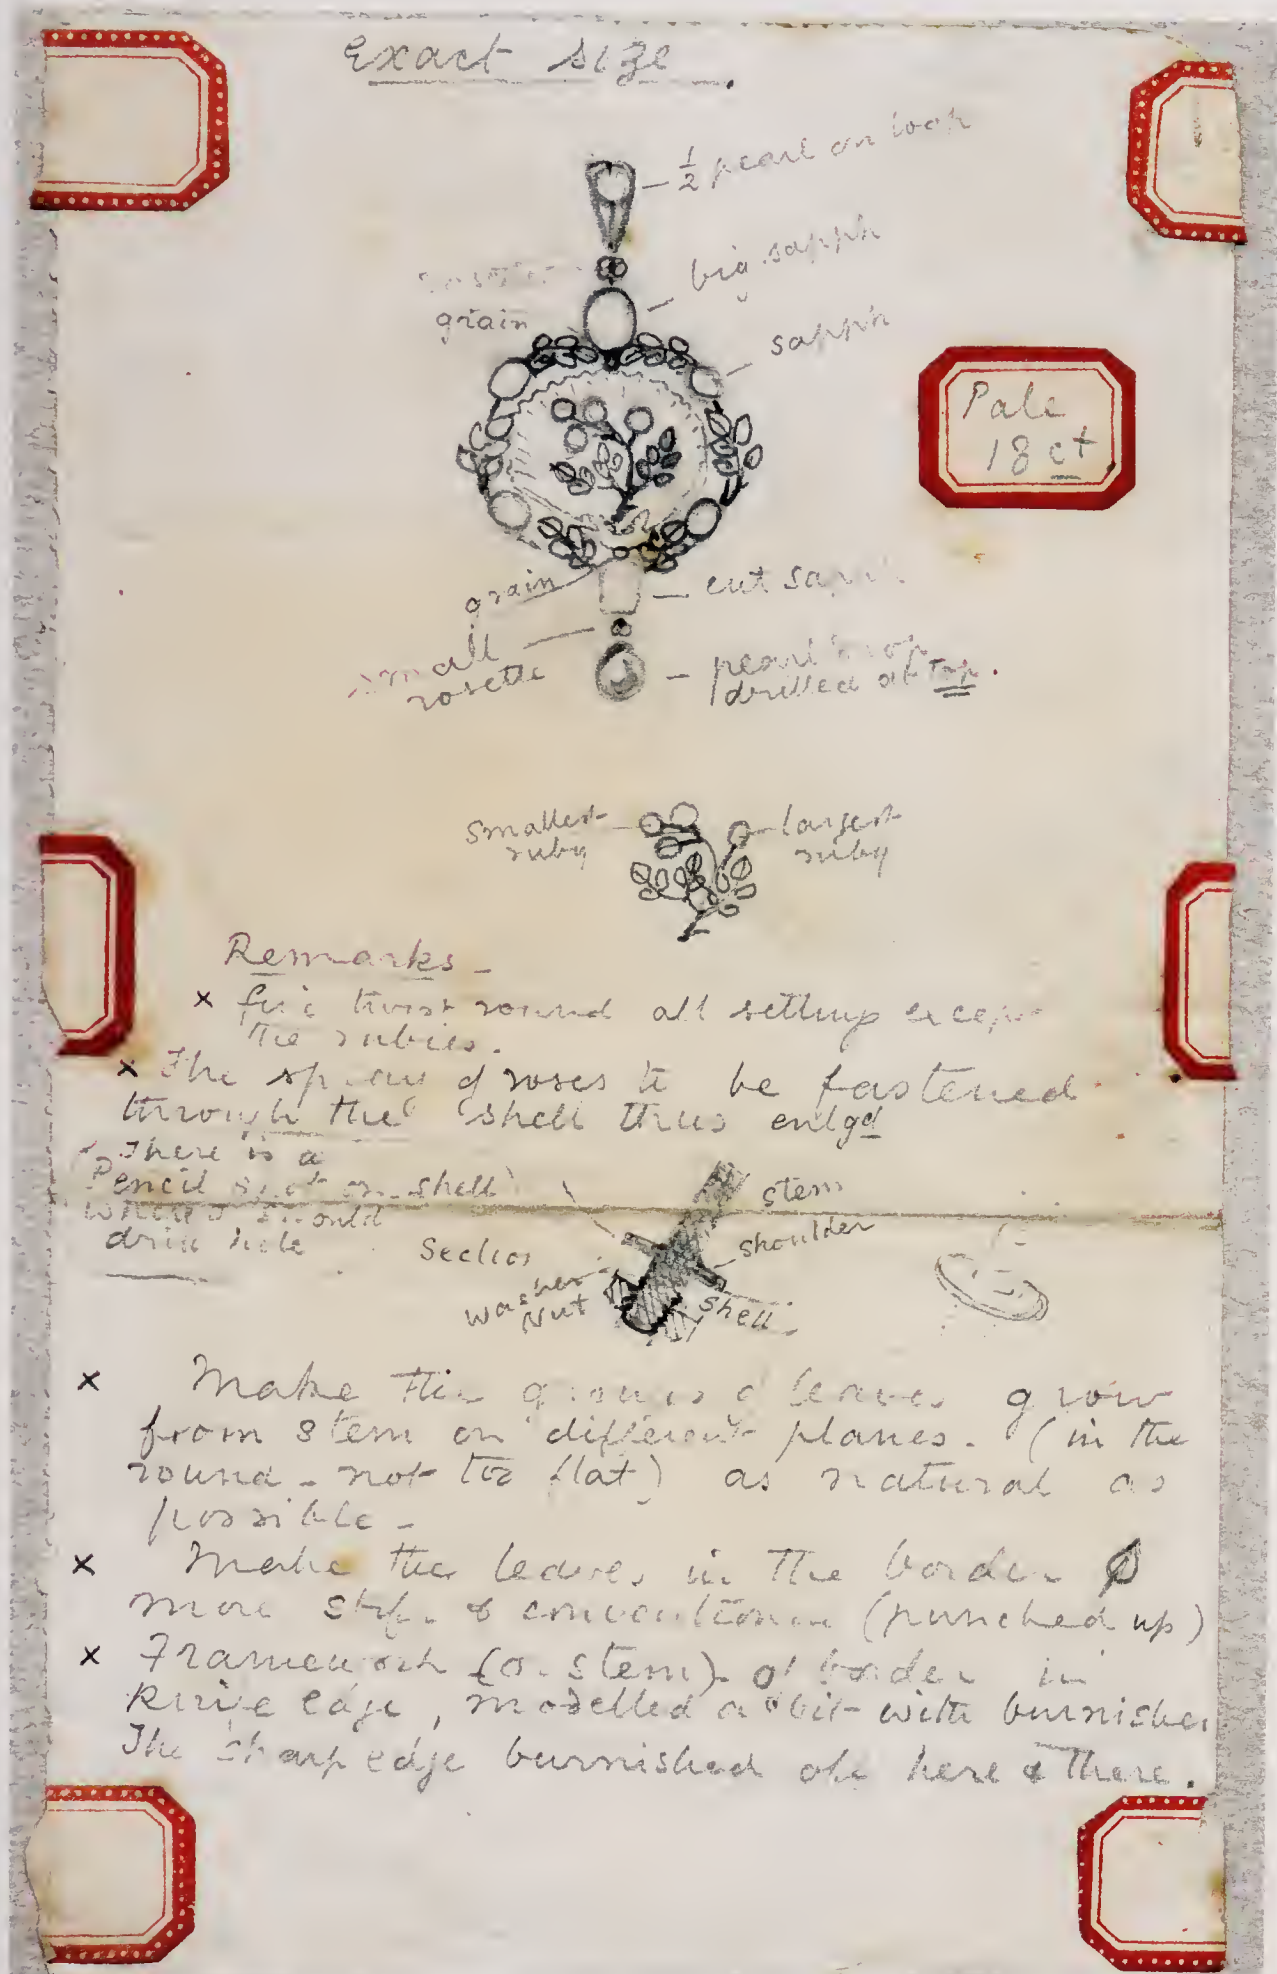 Exact size.
½ pearl on loop
big sapph
grain
sapph
Pale
18 ct
grain
cut
small
rosette
pearl drop
drilled at Top.
smallest
ruby
largest
ruby
Remarks -
× fine twist round all settings except
the rubies.
× The spray of roses to be fastened
through the shell thus enlgd
There is a
Pencil spot on shell
where I should
drill hole
stem
shoulder
Section
washer
Nut
shell
× Make the groups of leaves grow
from stem on different planes. (in the
round - not too flat) as natural as
possible -
× Make the leaves in the border
more stiff & conventional (punched up)
× Framework (or stem) of border in
knife edge, modelled a bit with burnisher
The sharp edge burnished off here & there.